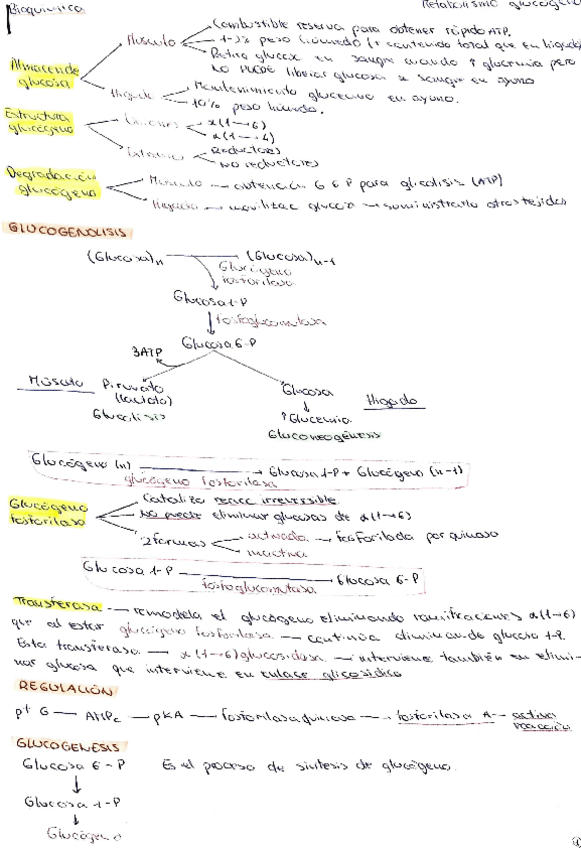 Bioquímica
Metabolismo glucógeno
Combustible reserva para obtener rápido ATP.
Músculo
1-2% peso húmedo (↑ contenido total que en hígado)
Retira glucosa en sangre cuando ↑ glucemia pero
NO PUEDE liberar glucosa a sangre en ayuno
Almacen de
glucosa
Hígado
Mantenimiento glucemia en ayuno.
10% peso húmedo.
Estructura
glucógeno
Uniones
α(1→6)
α(1→4)
Extremos
Reductores
NO reductores
Degradación
glucógeno
Músculo — obtención G 6 P para glicolisis (ATP)
Hígado — movilizar glucosa → suministrarla otros tejidos
GLUCOGENOLISIS
(Glucosa)n
(Glucosa)n-1
Glucógeno
fosforilasa
Glucosa 1-P
fosfoglucomutasa
Glucosa 6-P
3ATP
Músculo
Piruvato
(lactato)
Glucolisis
Glucosa
↓
↑Glucemia
Gluconeogénesis
Hígado
Glucógeno (n) → Glucosa 1-P + Glucógeno (n-1)
glucógeno fosforilasa
Glucógeno
fosforilasa
Cataliza reacc irreversible
No puede eliminar glucosas de α(1→6)
2 formas
activada — fosforilada por quinasa
inactiva
Glucosa 1-P → Glucosa 6-P
fosfoglucomutasa
Transferasa — remodela el glucógeno eliminando ramificaciones α(1→6)
que al estar glucógeno fosforilasa — continúa eliminando glucosa 1-P.
Esta transferasa — α(1→6)glucosidasa — interviene también en elimi-
nar glucosa que interviene en enlace glicosídico
REGULACIÓN
pt G — AMPc — pKA — fosforilasa quinasa → fosforilasa A — activa
GLUCOGENESIS
Glucosa 6-P
Es el proceso de síntesis de glucógeno.
↓
Glucosa 1-P
↓
Glucógeno
①